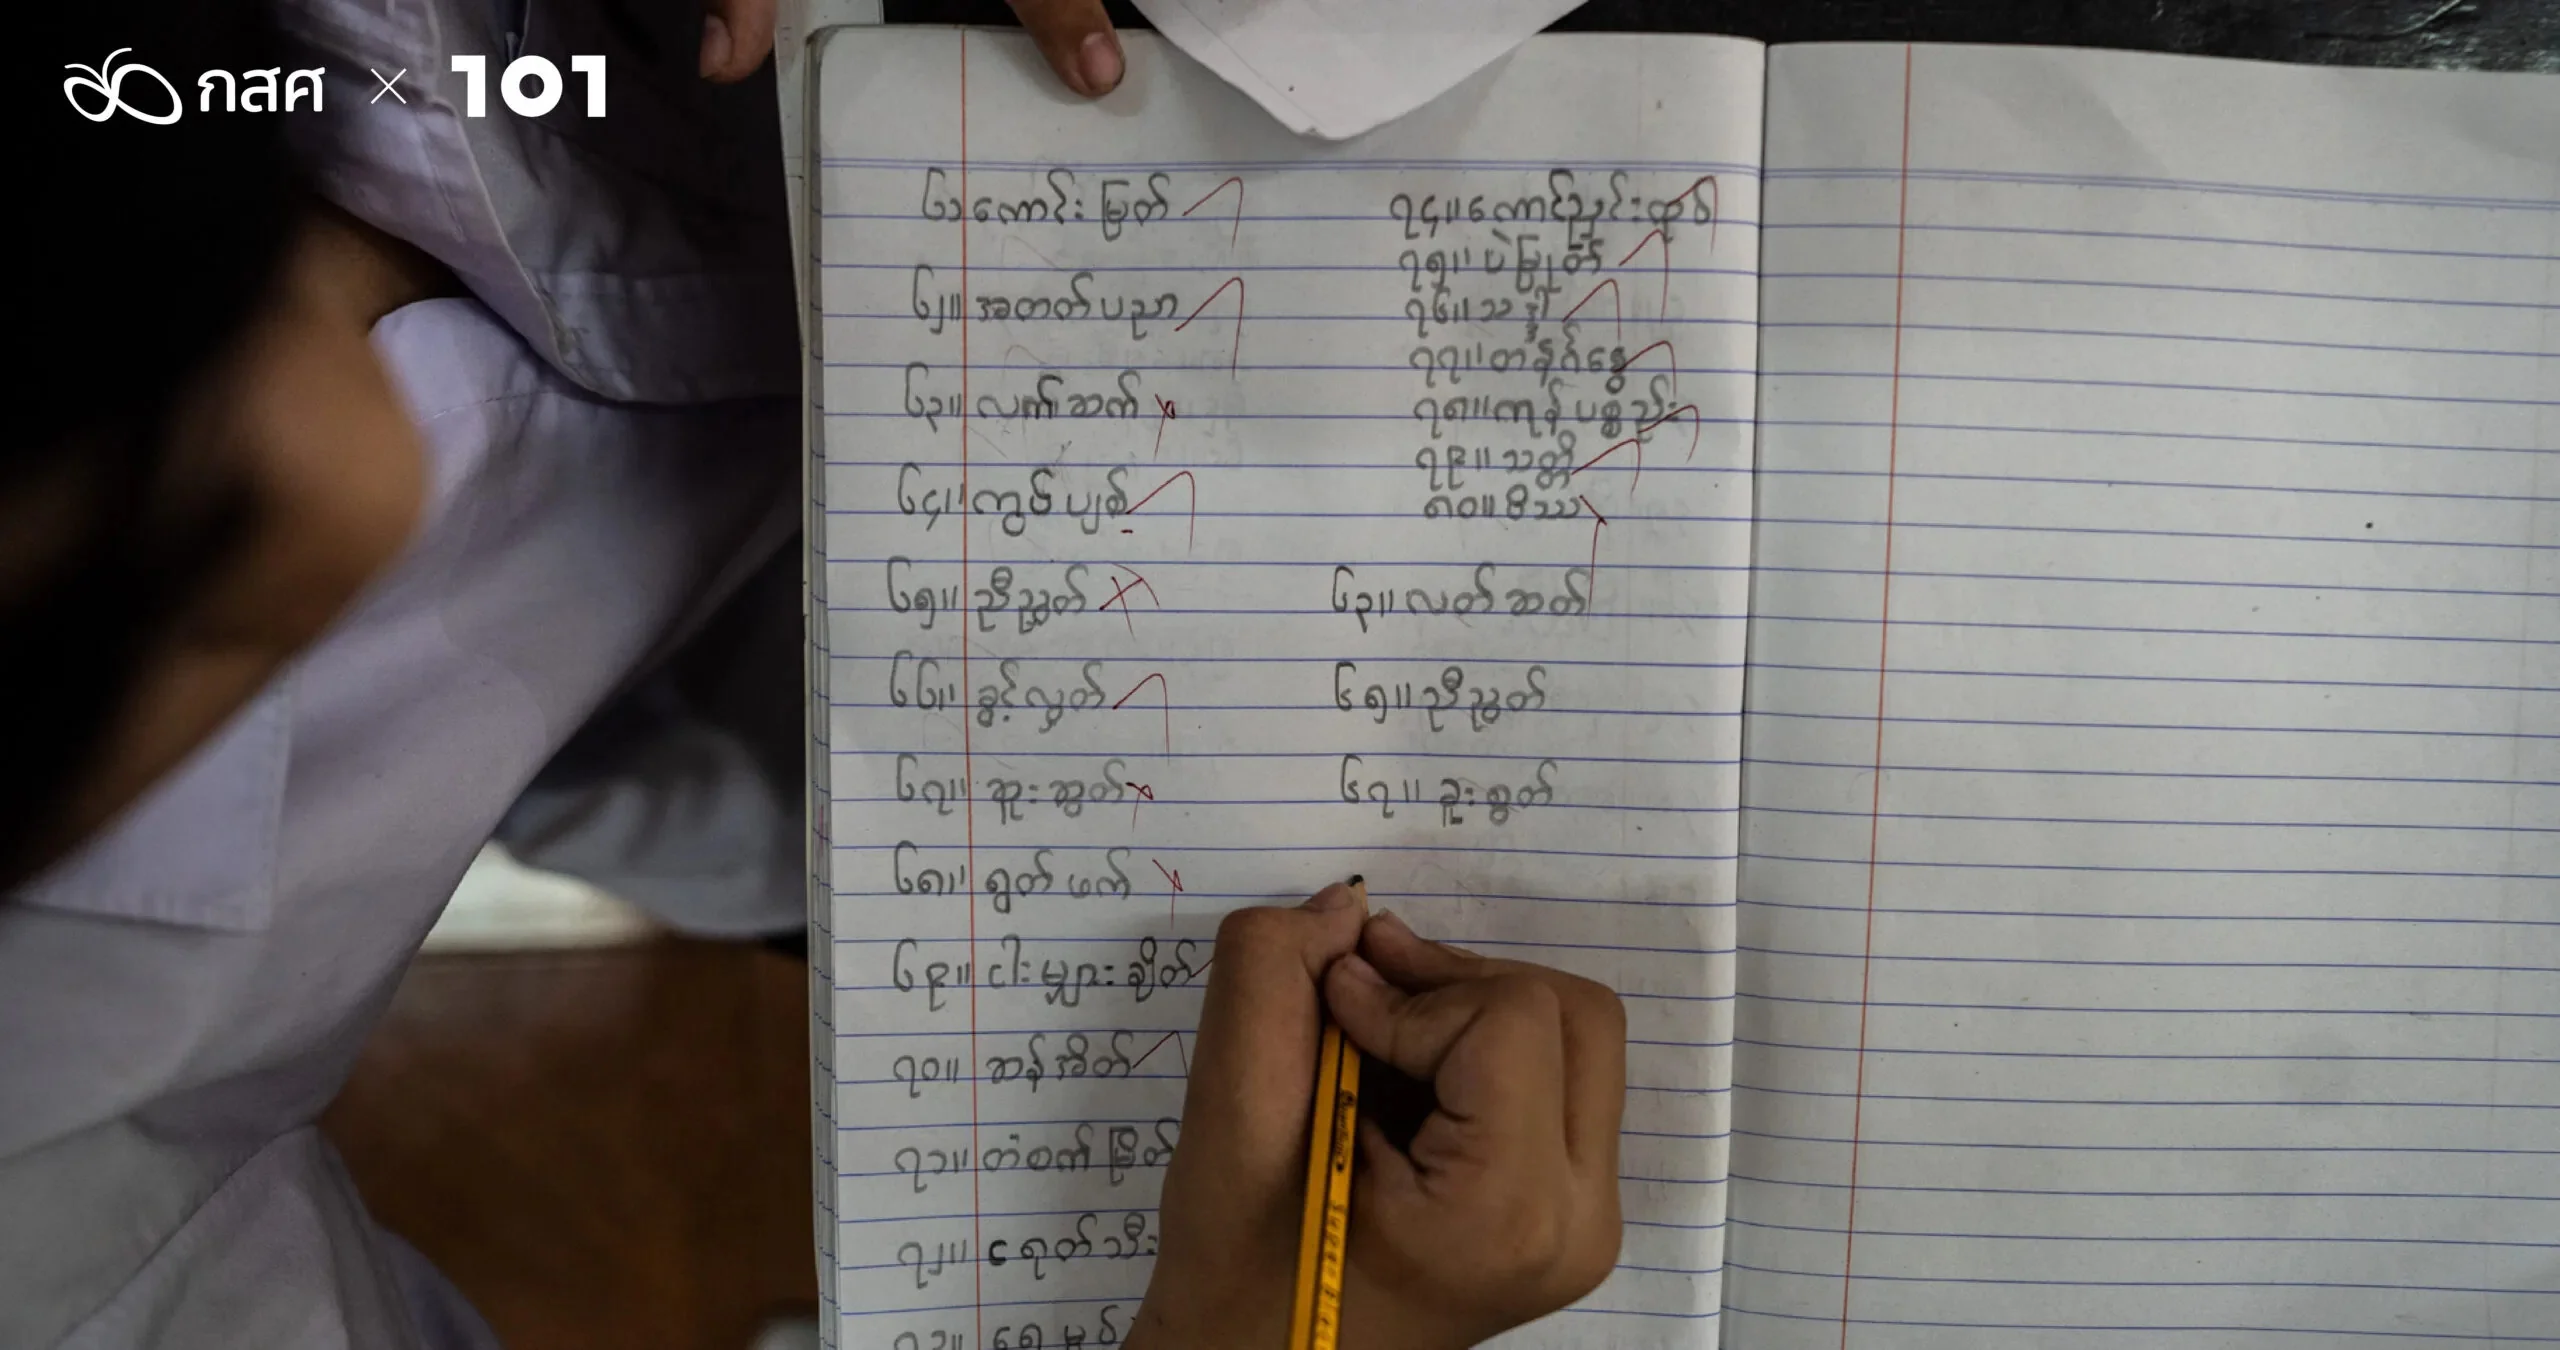 กสศ × 101
၆၁ ကောင်းမြတ်
၆၂။ အတတ်ပညာ
၆၃။ လက်ဆက်
၆၄။ ကွပ်ပျစ်
၆၅။ ညီညွတ်
၆၆။ ခွင့်လွှတ်
၆၇။ ဆူးဆွတ်
၆၈။ ရွတ်ဖက်
၆၉။ ငါးမျှားချိတ်
၇၀။ ဆန်အိတ်
၇၁။ တံစက်မြိတ်
၇၂။ ငရုတ်သီး
၇၄။ ကောင်းညှင်းထုပ်
၇၅။ ပဲပြုတ်
၇၆။ သ
၇၇။ တန်ဂ်
၇၈။ ကုန်ပစ္စည်း
၇၉။ သတ္တိ
၈၀။ ဝိသ
၆၃။ လတ်ဆတ်
၆၅။ ညီညွတ်
၆၇။ ခူးစွတ်